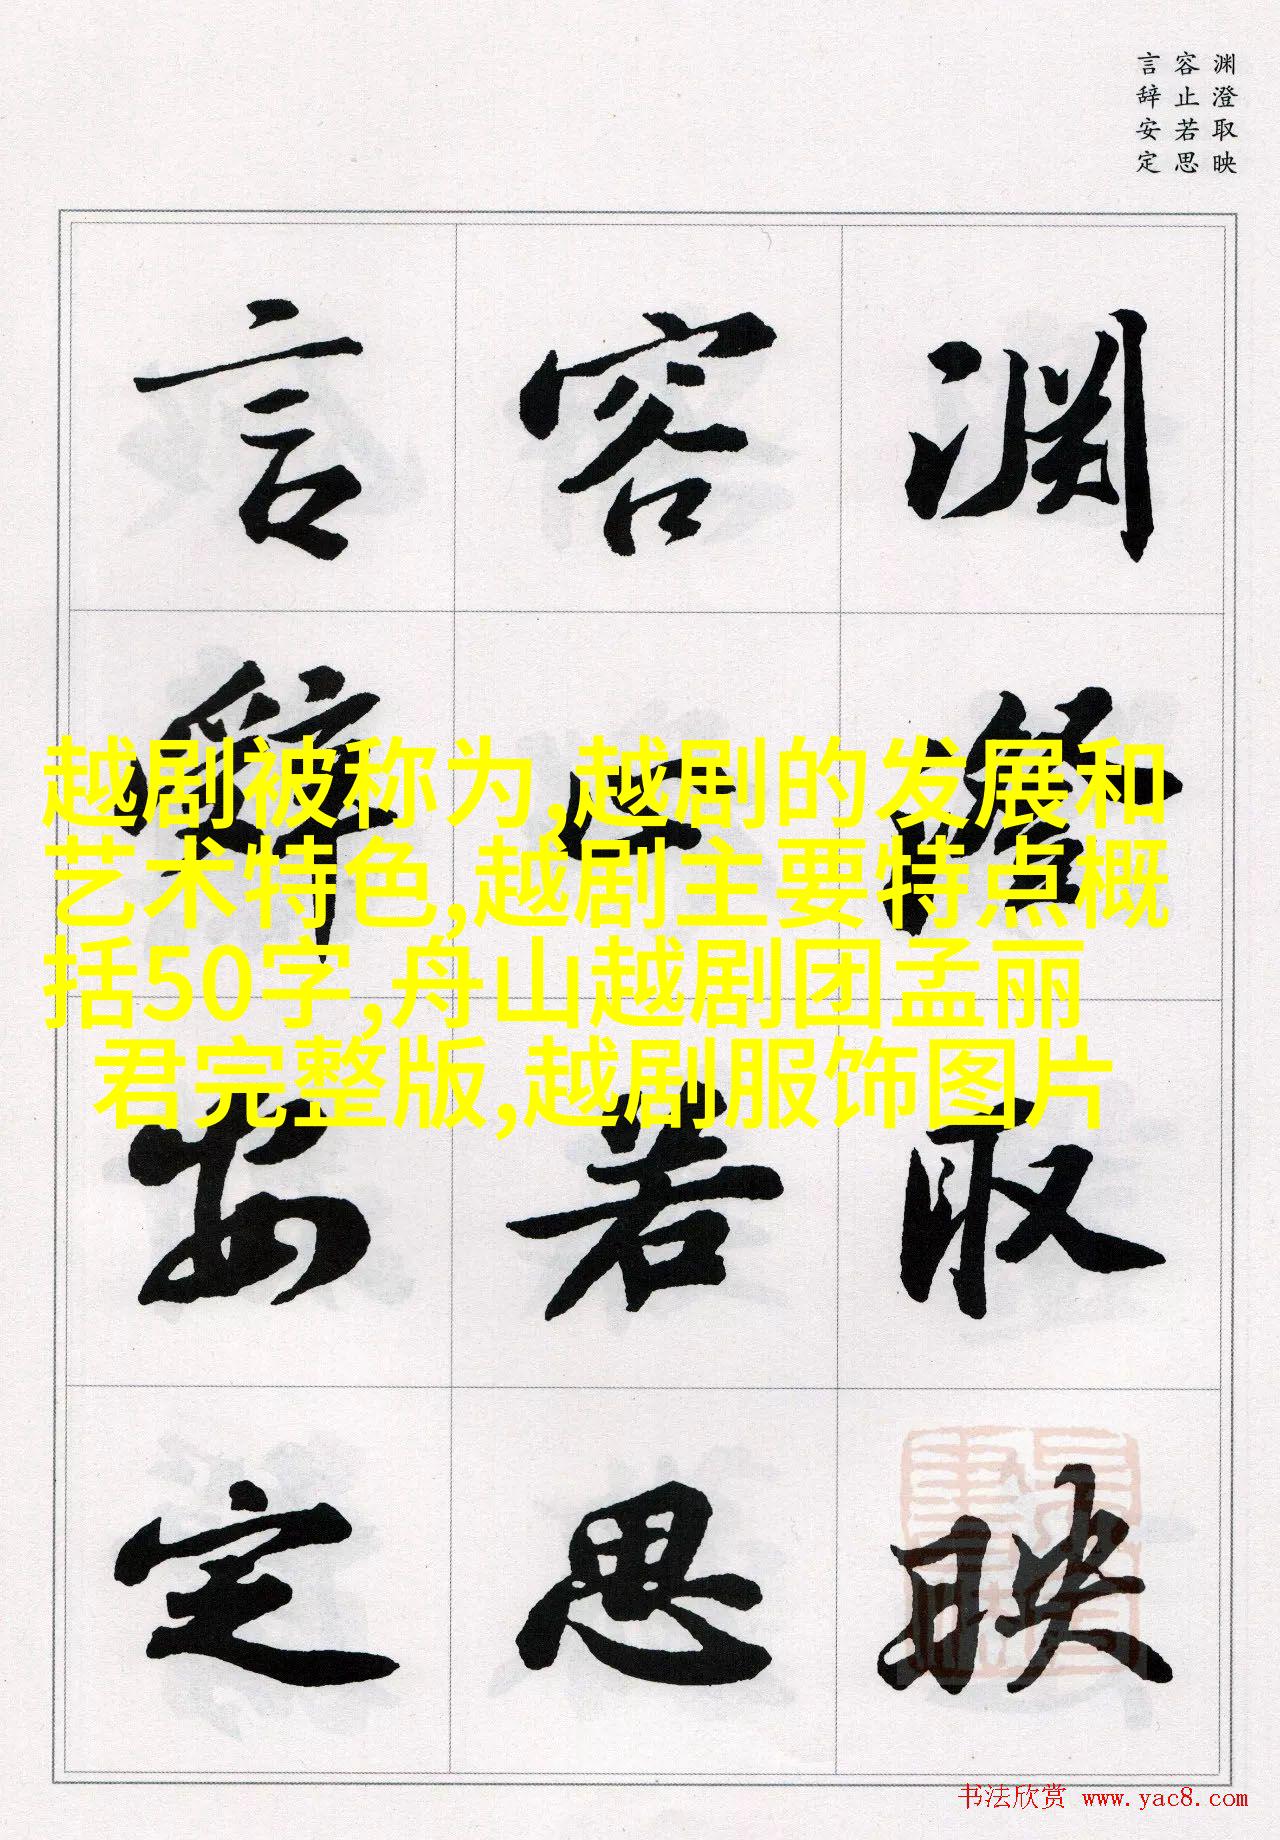 渊澄取映
容止若思
言辞安定
渊澄取映
容止若思
言辞安定
越剧被称为,越剧的发展和
艺术特色,越剧主要特点概
括50字,舟山越剧团孟丽
君完整版,越剧服饰图片
书法欣赏 www.yac8.com